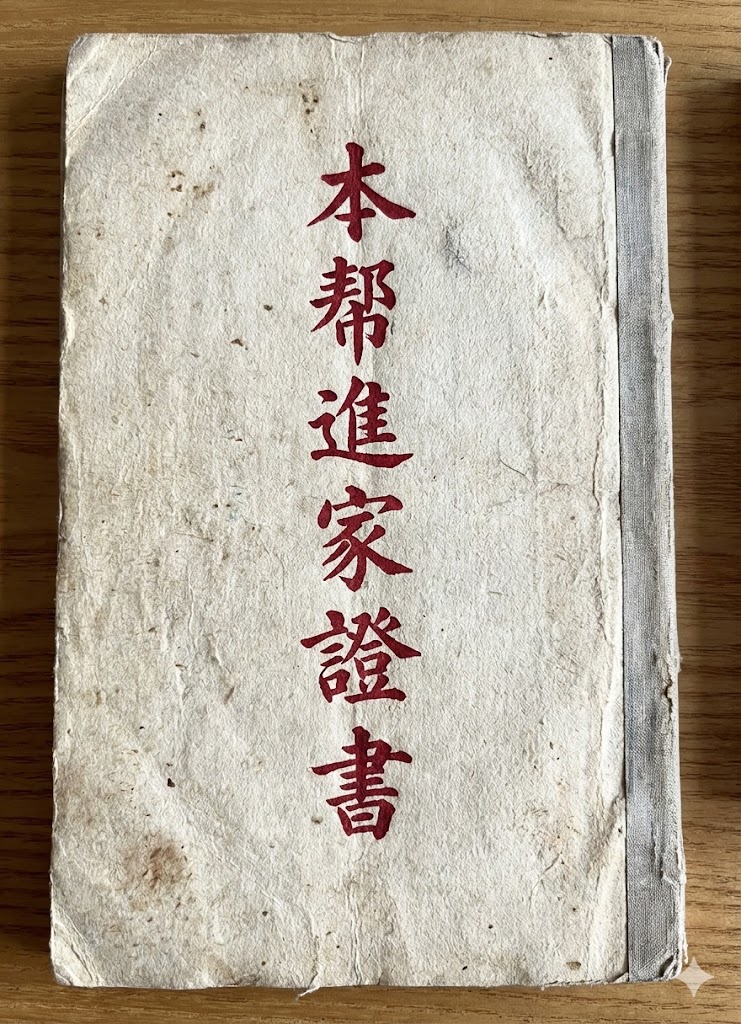 本帮進家證書